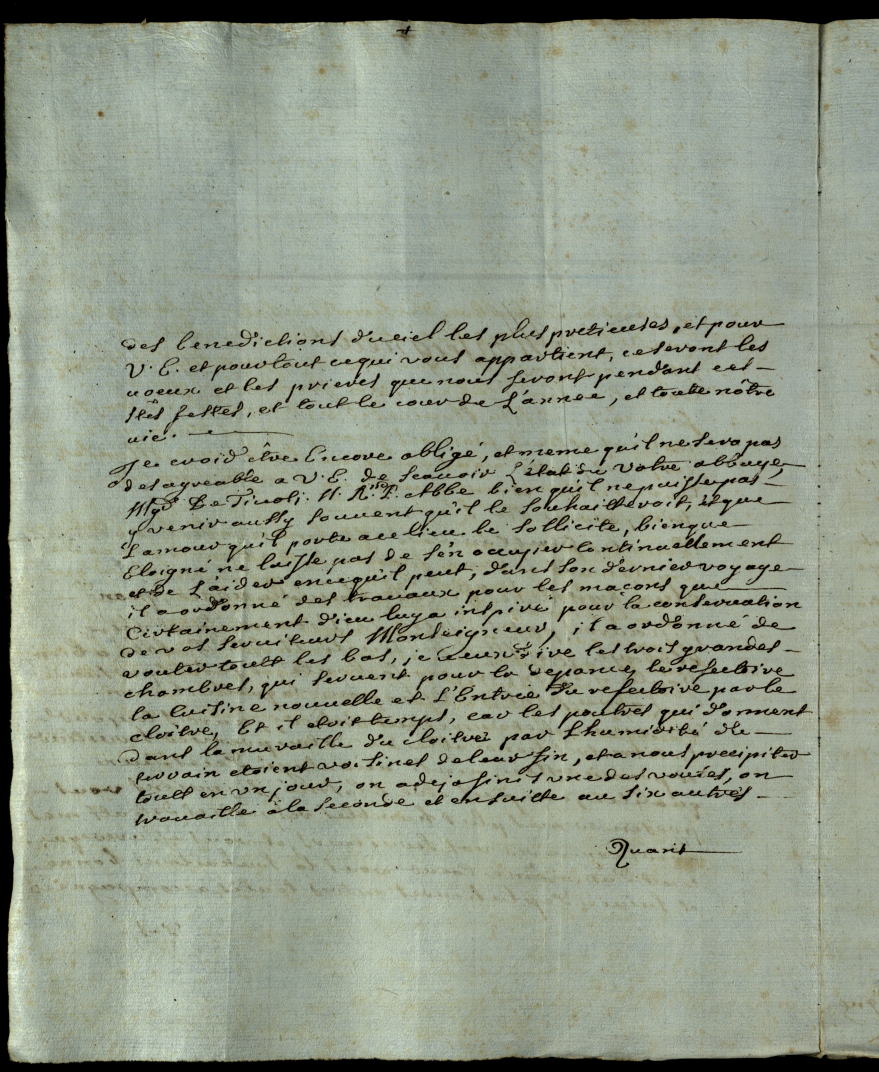 des benedictions du ciel les plus pretieuses, et pour
V. E. et pour tout ce qui vous appartient, ce seront les
uoeux et les prieres que nous ferons pendant ces
stes festes, et tout le cour de L'année, et toute nôtre
vie.
Je croid être Encore obligé, et meme qu'il ne sera pas
desagreable a V. E. de scauoir L'état du votre abbaye
Mgr De Tivoli. N. Rme P. Abbe bien qu'il ne puisse pas
y venir aussy souuent qu'il le souhaitteroit, et que
Lamour qu'il porte a ce lieu le sollicite, bienque
Eloigné ne laisse pas de s'en occuper continuellement
et de L'aider en ce qu'il peut, dans son dernier voyage
il a ordonné des trauaux pour les maçons que
Certainement dieu luy a inspiré pour la conseruation
de vos seruiteurs Monseigneur, il a ordonné de
vouter tout les bas, je veux dire les trois grandes
chambres, qui seruent pour la depance, le refectoire
la cuisine nouuelle et L'Entrée du refectoire par le
cloitre, Et il etoit temps, car les poutres qui donnent
dans la muraille du cloitre par Lhumidité de
terrain etoient voisines de leur fin, et a nous precipiter
tous en un jour, on a deja finis vne des voutes, on
trauaille à la seconde et en suitte au six autres
Quant